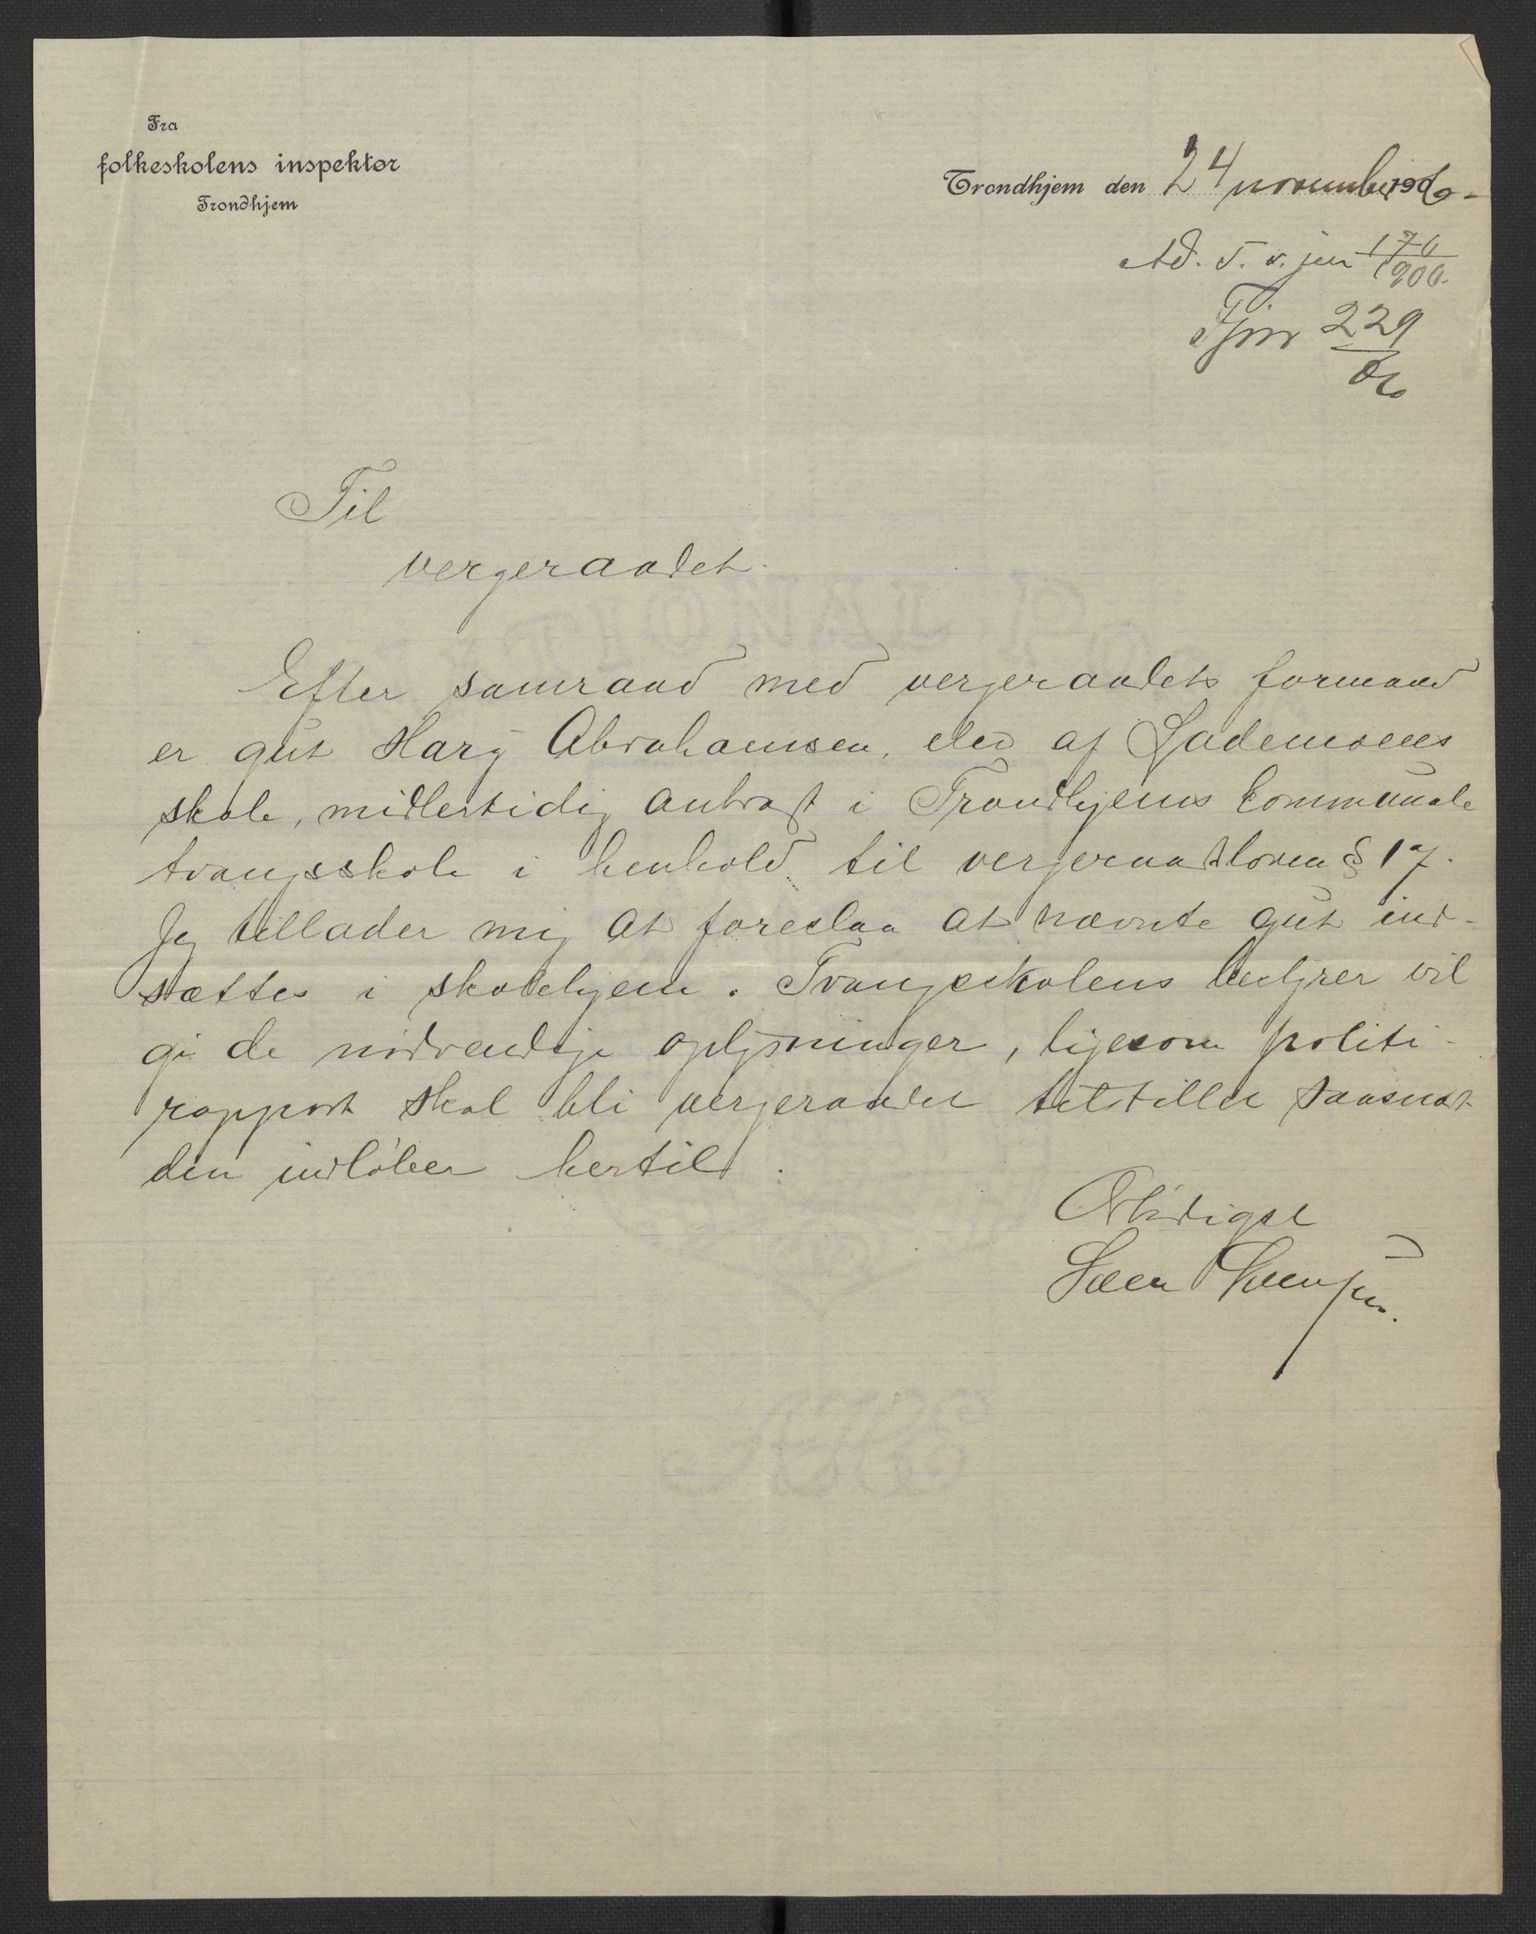 Fra
folkeskolens inspektør
Trondhjem
Trondhjem den 24 november 1906.
Ad. T. v. jnr 176/1900.
Tjnr 229/06
Til
vergeraadet.
Efter samraad med vergeraadets formand
er gut Harý Abrahamsen, elev af Lademoens
skole, midlertidig anbragt i Trondhjems kommunale
tvangsskole i henhold til vergeraadsloven § 17.
Jeg tillader mig at foreslaa at nævnte gut ind-
sættes i skolehjem. Tvangsskolens bestyrer vil
gi de nødvendige oplysninger, ligesom politi-
rapport skal bli vergeraadet tilstillet saasnart
den indløber hertil.
Ærbødigst